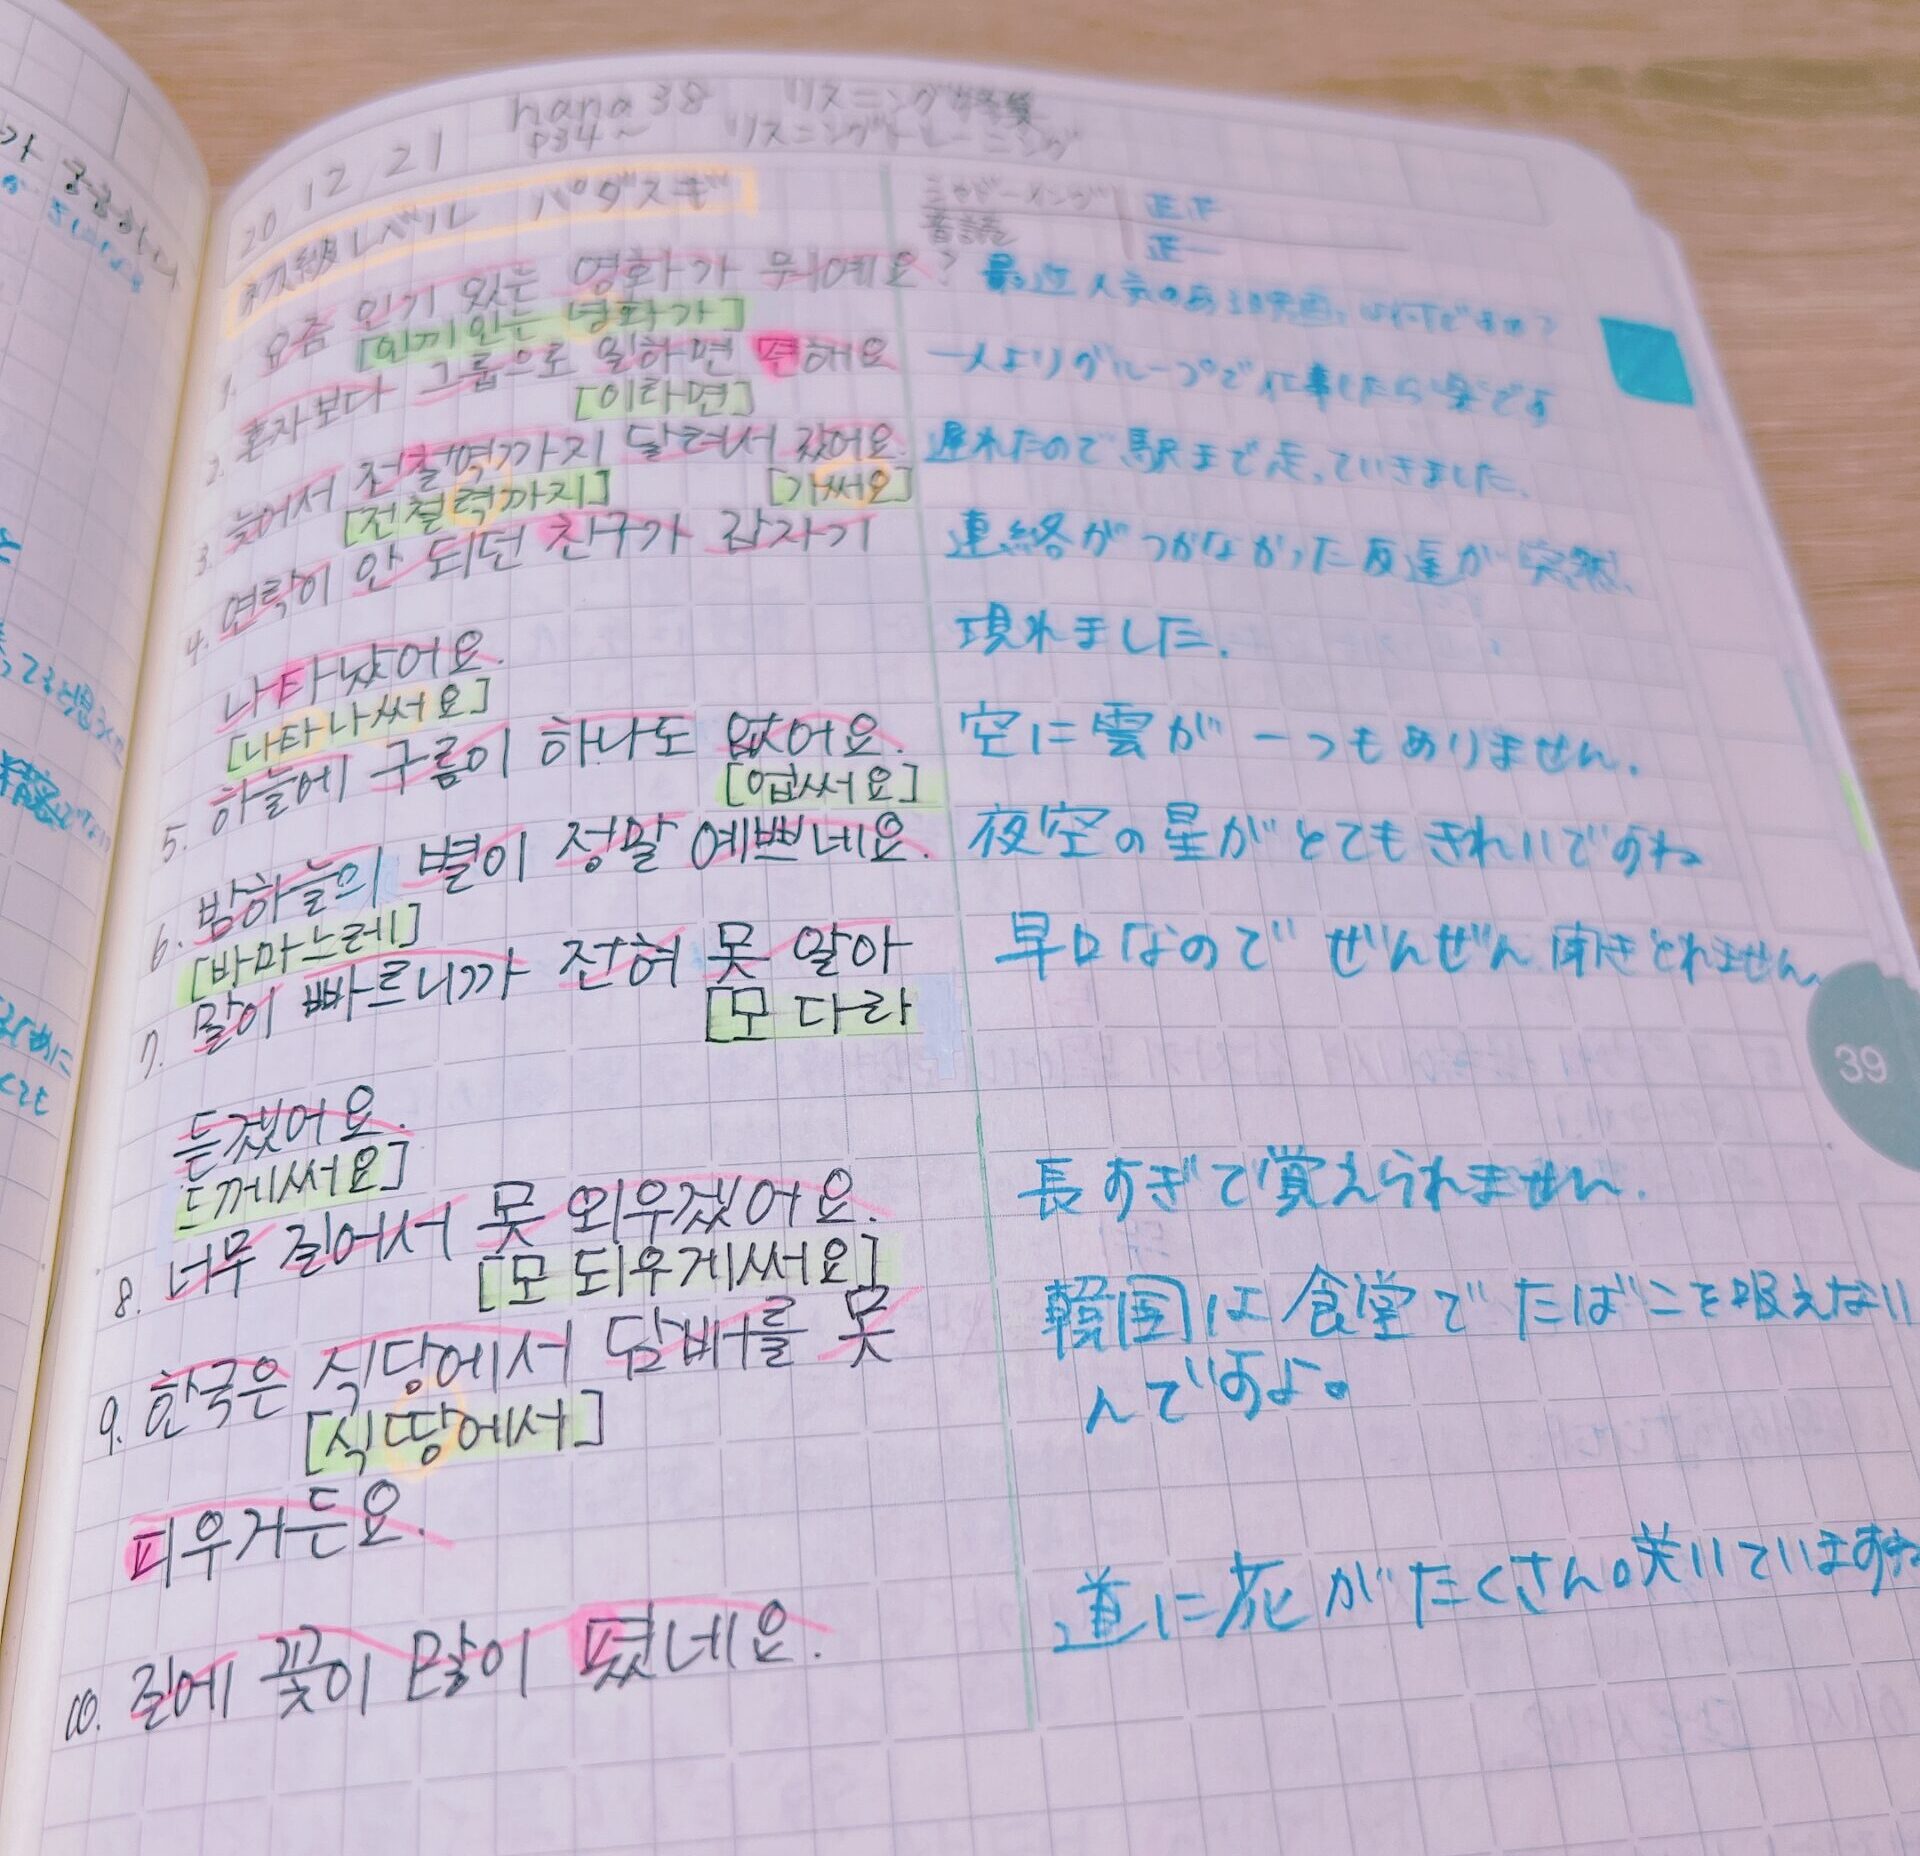 20.12.21
hana 38 リスニング特集
P34~ リスニングトレーニング
初級レベル パダスギ
シャドーイング 正正
音読 正一
1. 요즘 인기 있는 영화가 뭐예요? 最近人気のある映画は何ですか?
[인끼 인는 녕화가]
2. 혼자보다 그룹으로 일하면 편해요 一人よりグループで仕事したら楽です
[이라면]
3. 늦어서 전철역까지 달려서 갔어요. 遅れたので駅まで走っていきました.
[전철력까지] [가써요]
4. 연락이 안 되던 친구가 갑자기 連絡がつかなかった友達が突然.
나타났어요. 現れました.
[나타나써요]
5. 하늘에 구름이 하나도 없어요. 空に雲が一つもありません.
[업써요]
6. 밤하늘의 별이 정말 예쁘네요. 夜空の星がとてもきれいですね
[바마느레]
7. 말이 빠르니까 전혀 못 알아 早口なので ぜんぜん聞きとれません.
[모 다라
듣겠어요.
드께써요]
8. 너무 길어서 못 외우겠어요. 長すぎて覚えられません.
[모 되우게써요]
9. 한국은 식당에서 담배를 못 韓国は食堂でたばこを吸えない
[식땅에서] んですよ。
피우거든요.
10. 길에 꽃이 많이 폈네요. 道に花がたくさん咲いていますね
39